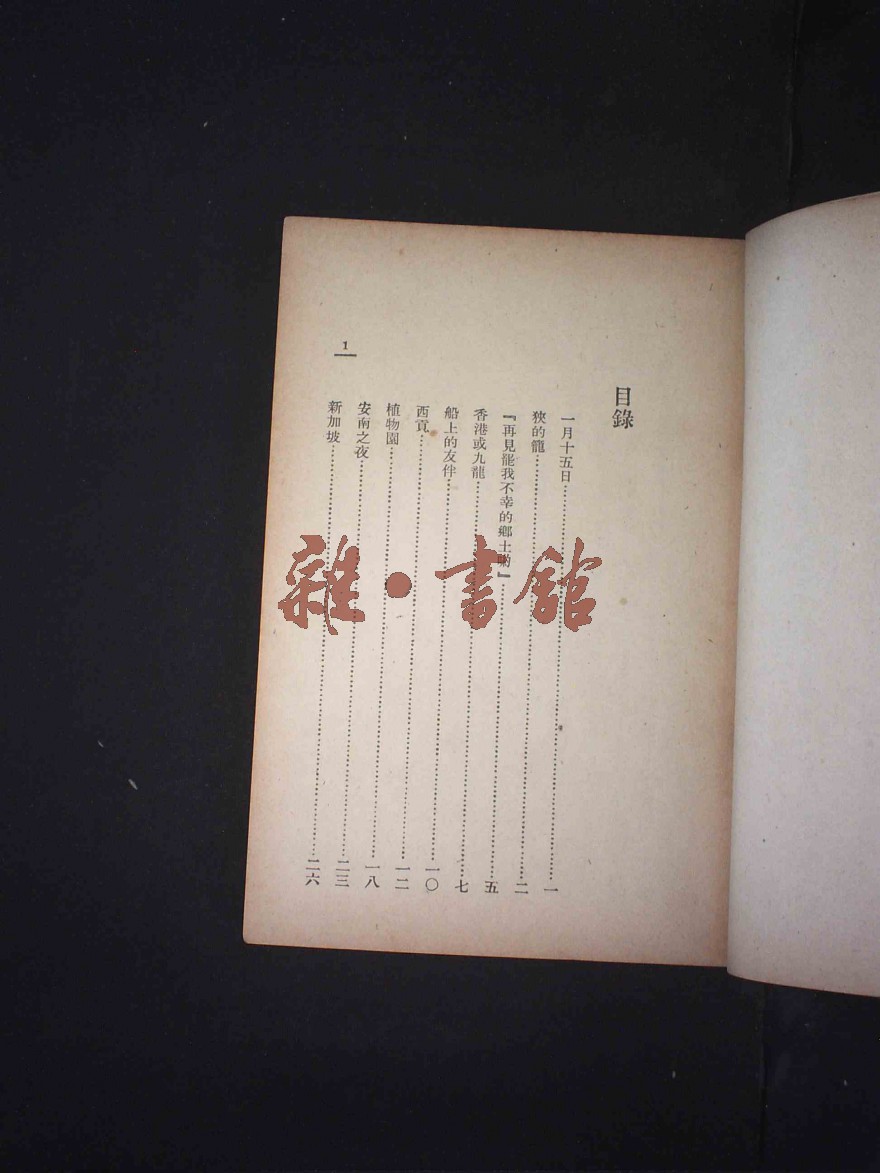 目錄
一月十五日⋯⋯⋯⋯一
狹的籠⋯⋯⋯⋯二
『再見罷我不幸的鄉土喲』⋯⋯⋯⋯五
香港或九龍⋯⋯⋯⋯七
船上的友伴⋯⋯⋯⋯一〇
西貢⋯⋯⋯⋯一二
植物園⋯⋯⋯⋯一八
安南之夜⋯⋯⋯⋯二三
新加坡⋯⋯⋯⋯二六
1
雜·書館